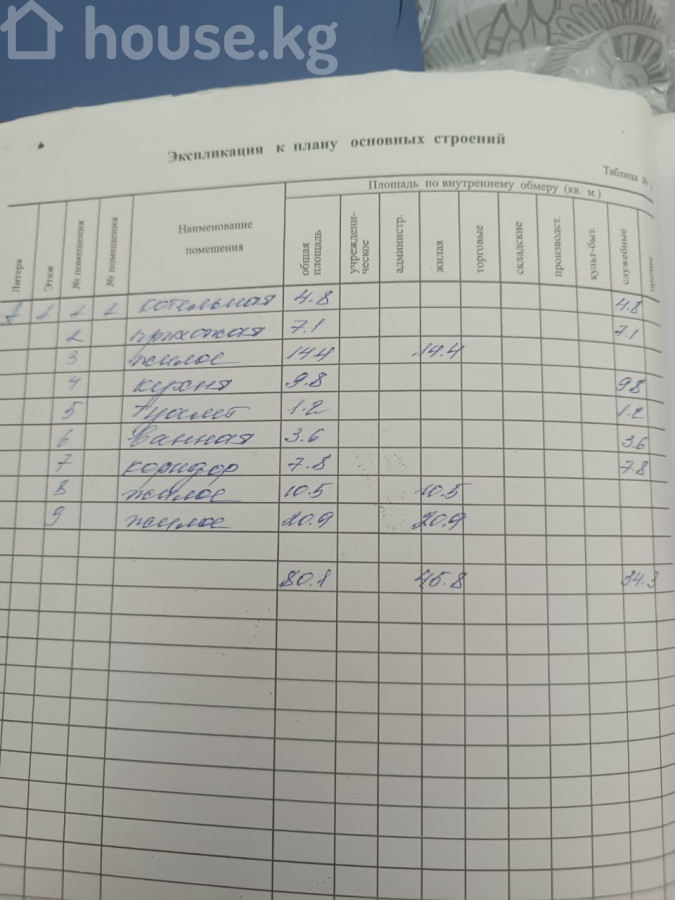 house.kg
Экспликация к плану основных строений
Таблица №
Площадь по внутреннему обмеру (кв. м.)
Литера
Этаж
№ помещения
№ помещения
Наименование
помещения
общая
площадь
учреждени-
ческое
администр.
жилая
торговые
складские
производст.
культ-быт.
служебные
1 1 1 котельная 4.8 4.8
2 прихожая 7.1 7.1
3 жилое 14.4 14.4
4 кухня 9.8 98
5 туалет 1.2 1.2
6 Ванная 3.6 3.6
7 коридор 7.8 7.8
8 жилое 10.5 10.5
9 жилое 20.9 20.9
80.1 45.8 34.3